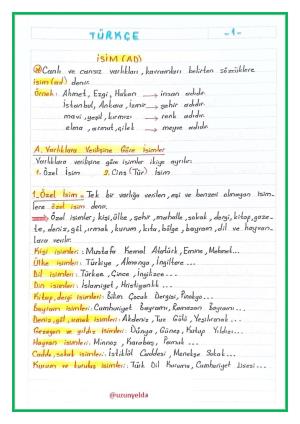 TÜRKÇE
-1-
İSİM (AD)
Canlı ve cansız varlıkları, kavramları belirten sözcüklere
isim (ad) denir.
Örnek: Ahmet, Ezgi, Hakan → insan adıdır.
İstanbul, Ankara, İzmir → şehir adıdır.
mavi, yeşil, kırmızı → renk adıdır.
elma, armut, çilek → meyve adıdır.
A. Varlıklara Verilişine Göre İsimler
Varlıklara verilişine göre isimler ikiye ayrılır:
1. Özel İsim 2. Cins (Tür) İsim
1. Özel İsim: Tek bir varlığa verilen, eşi ve benzeri olmayan isim
lere özel isim denir.
Özel isimler; kişi, ülke, şehir, mahalle, sokak, dergi, kitap, gaze
te, deniz, göl, ırmak, kurum, kıta, bölge, bayram, dil ve hayvan
lara verilir.
Kişi isimleri: Mustafa Kemal Atatürk, Emine, Mehmet...
Ülke isimleri: Türkiye, Almanya, İngiltere...
Dil isimleri: Türkçe, Çince, İngilizce...
Din isimleri: İslamiyet, Hristiyanlık...
Kitap, dergi isimleri: Bilim Çocuk Dergisi, Pinokyo...
Bayram isimleri: Cumhuriyet Bayramı, Ramazan Bayramı...
Deniz, göl, ırmak isimleri: Akdeniz, Tuz Gölü, Yeşilırmak...
Gezegen ve yıldız isimleri: Dünya, Güneş, Kutup Yıldızı...
Hayvan isimleri: Minnoş, Karabaş, Pamuk...
Cadde, sokak isimleri: İstiklâl Caddesi, Menekşe Sokak...
Kurum ve kuruluş isimleri: Türk Dil Kurumu, Cumhuriyet Lisesi...
@uzunyelda